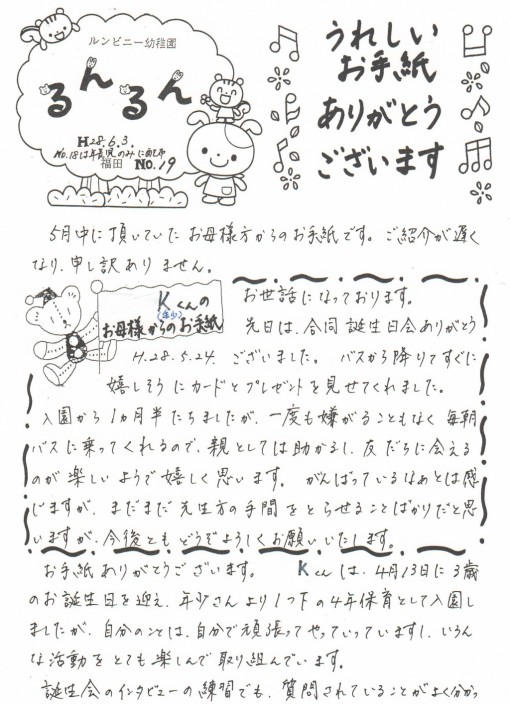 ルンビニー幼稚園
るんるん
H28.6.3.
No.18は年長児のみに配布
福田 No.19
うれしい
お手紙
ありがとう
ございます
5月中に頂いていたお母様方からのお手紙です。ご紹介が遅く
なり、申し訳ありません。
Kくんの
(年少)
お母様からのお手紙
H.28.5.24.
お世話になっております。
先日は、合同誕生日会ありがとう
ございました。バスから降りてすぐに
嬉しそうにカードとプレゼントを見せてくれました。
入園から1カ月半たちましたが、一度も嫌がることもなく毎朝
バスに乗ってくれるので、親としては助かるし、友だちに会える
のが楽しいようで嬉しく思います。がんばっているなぁとは感
じますが、まだまだ先生方の手間をとらせることばかりだと思
いますが、今後ともどうぞよろしくお願いいたします。
お手紙ありがとうございます。 Kくんは、4月13日に3歳
のお誕生日を迎え、年少さんより1つ下の4年保育として入園し
ましたが、自分のことは、自分で頑張ってやっていっていますし、いろん
な活動をとても楽しんで取り組んでいます。
誕生会のインタビューの練習でも、質問されていることがよく分かっ